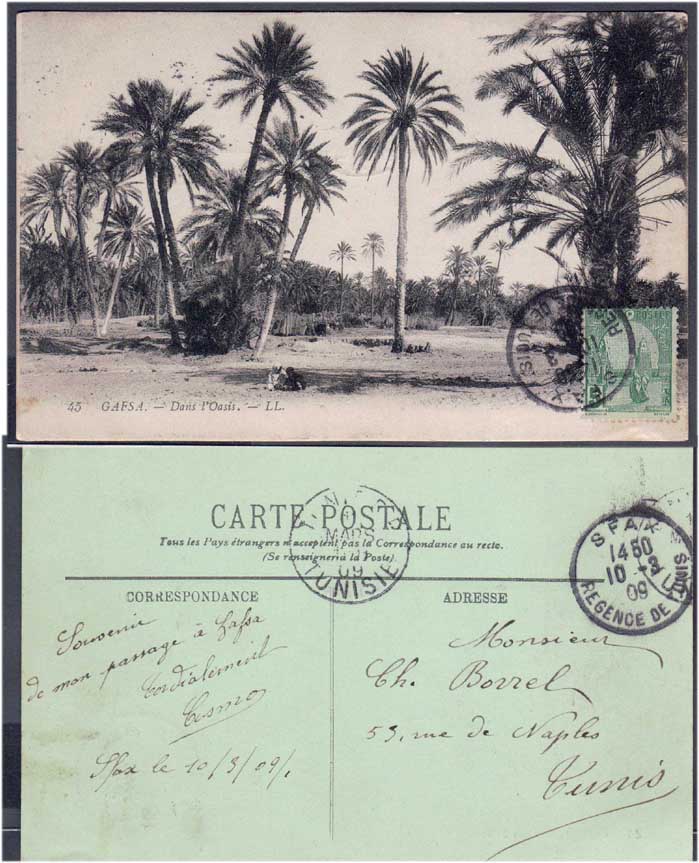 45 GAFSA. — Dans l'Oasis. — LL.
POSTES
CARTE POSTALE
Tous les Pays étrangers n'acceptent pas la Correspondance au recto.
(Se renseignera à la Poste).
MARS
09
TUNISIE
SFAX
1450
10 -3
09
REGENCE DE TUNIS
CORRESPONDANCE
ADRESSE
Souvenir
de mon passage à Gafsa
Cordialement
Cosmo
Sfax le 10/3/09/.
Monsieur
Ch. Borrel
53, rue de Naples
Tunis